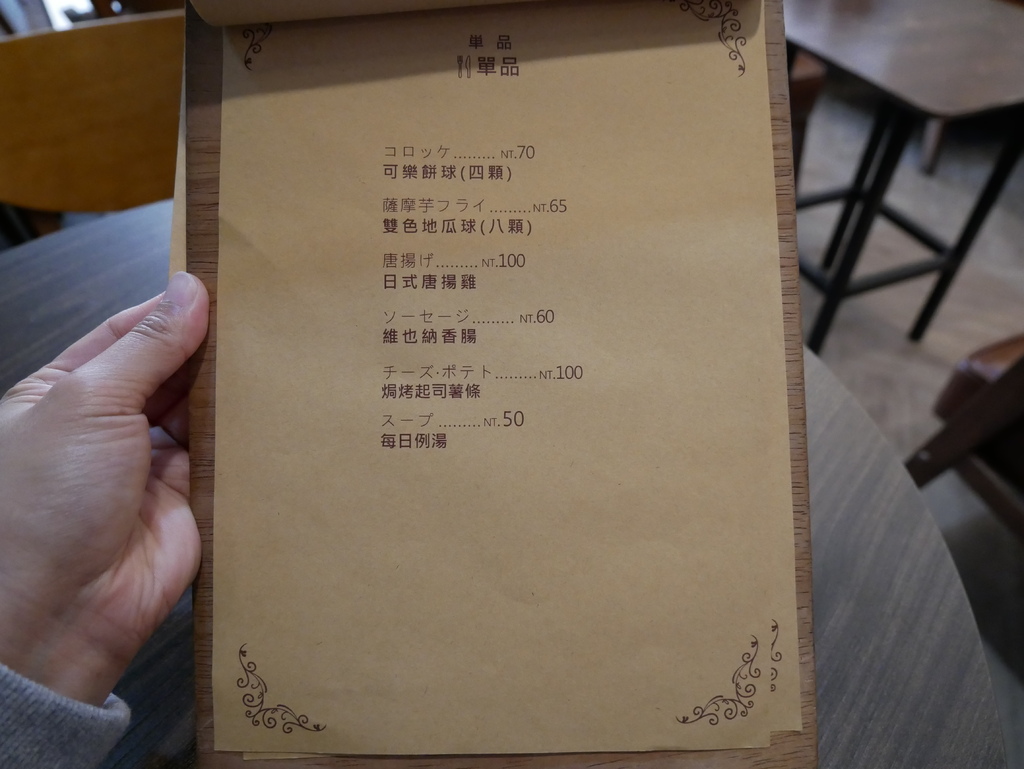 単品
單品
コロッケ......... NT.70
可樂餅球(四顆)
薩摩芋フライ.........NT.65
雙色地瓜球(八顆)
唐揚げ......... NT.100
日式唐揚雞
ソーセージ......... NT.60
維也納香腸
チーズ·ポテト.........NT.100
焗烤起司薯條
スープ.........NT.50
每日例湯